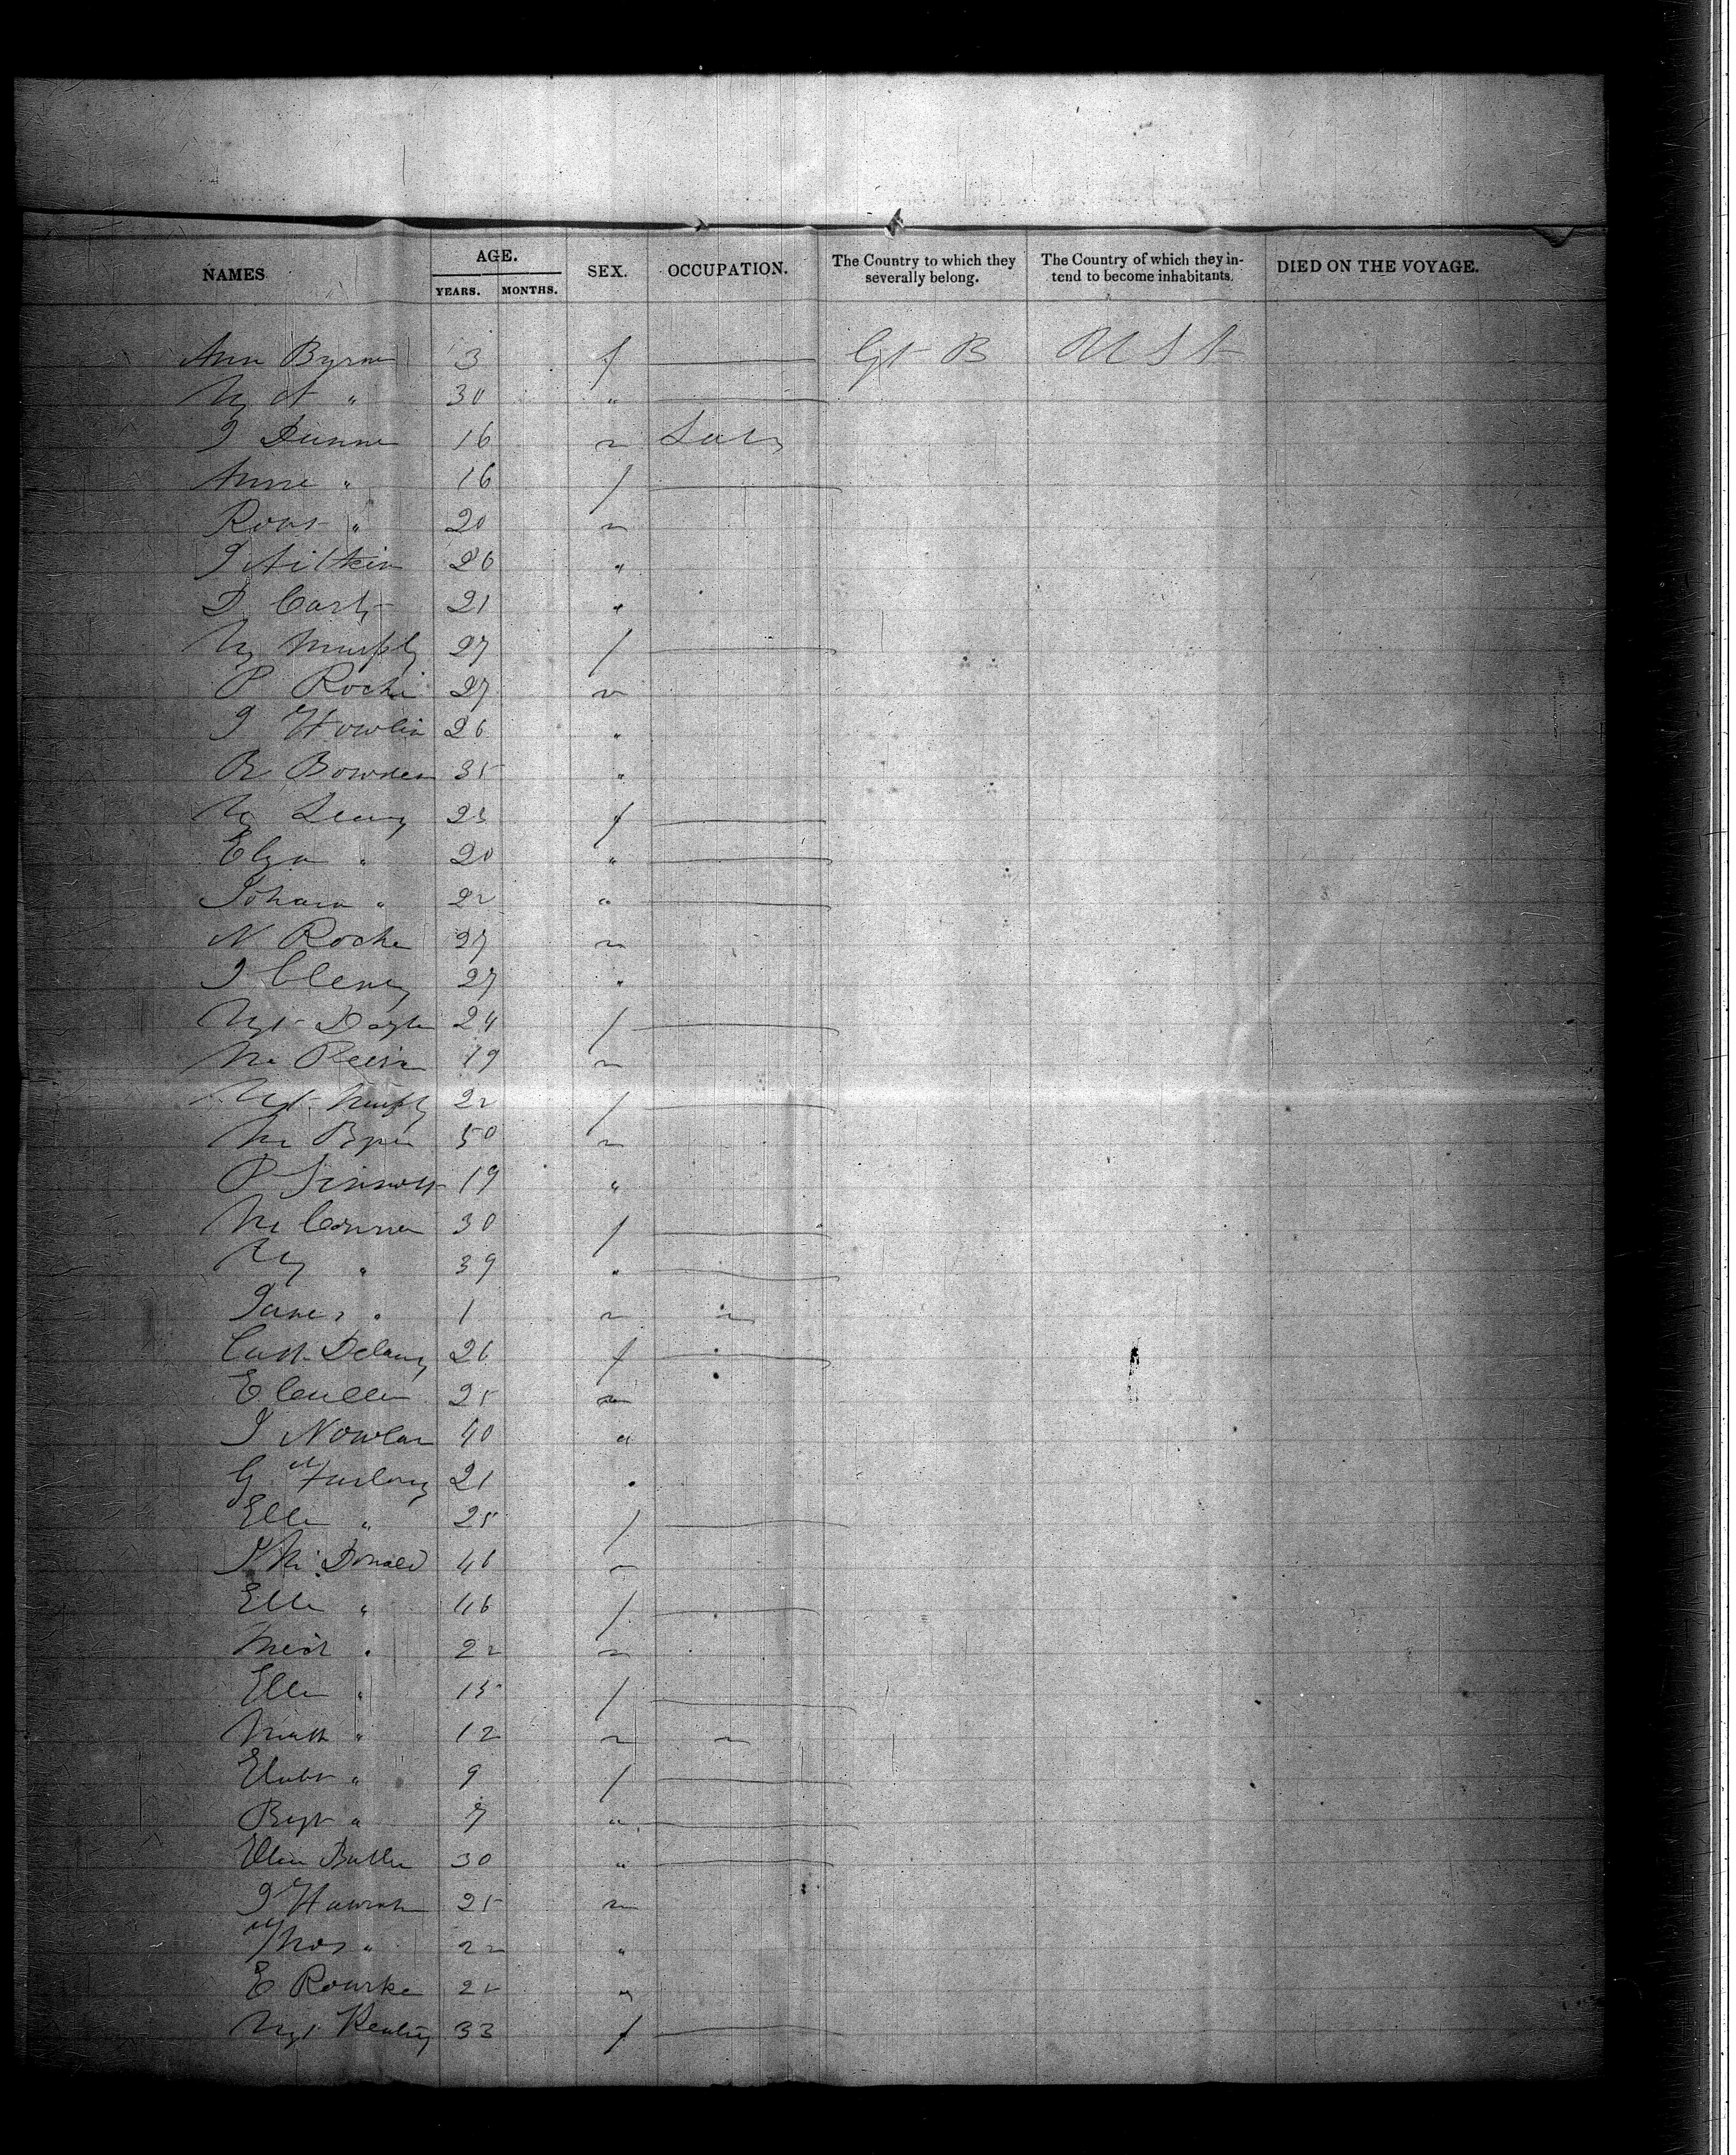 NAMES AGE. SEX. OCCUPATION. The Country to which they severally belong. The Country of which they intend to become inhabitants. DIED ON THE VOYAGE.
YEARS. MONTHS.
Ann Byrne 3 f Gt B U S A
" 30 "
J Dunne 16 m Labr
Anne " 16 f
" 20 m
J Aitkin 26 "
D. Carty 21 "
My Murphy 27 f
P Roche 27 m
J Howlin 26 "
R Bowden 35 "
My Leary 23 f
Eliza " 20 "
Johana " 22 "
N Roche 27 m
J Cleary 27 "
Mgt Doyle 24 f
19 m
Mgt Murphy 22 f
M Byrne 50 m
P Sinnott 19 "
M Connor 30 f
My " 39 "
James " 1 m "
Cath Delany 26 f
E Cullen 25 m
J Nowlan 40 "
G Furlong 21 "
Ellen " 25 f
Mc Donald 46 m
Ellen " 46 f
" 22 m
Ellen " 15 f
Math " 12 m "
" 9 f
Bgt " 7 "
Ellen Butler 30 "
J 25 m
Thos " 22 "
E Rourke 21 "
Mgt Keating 33 f